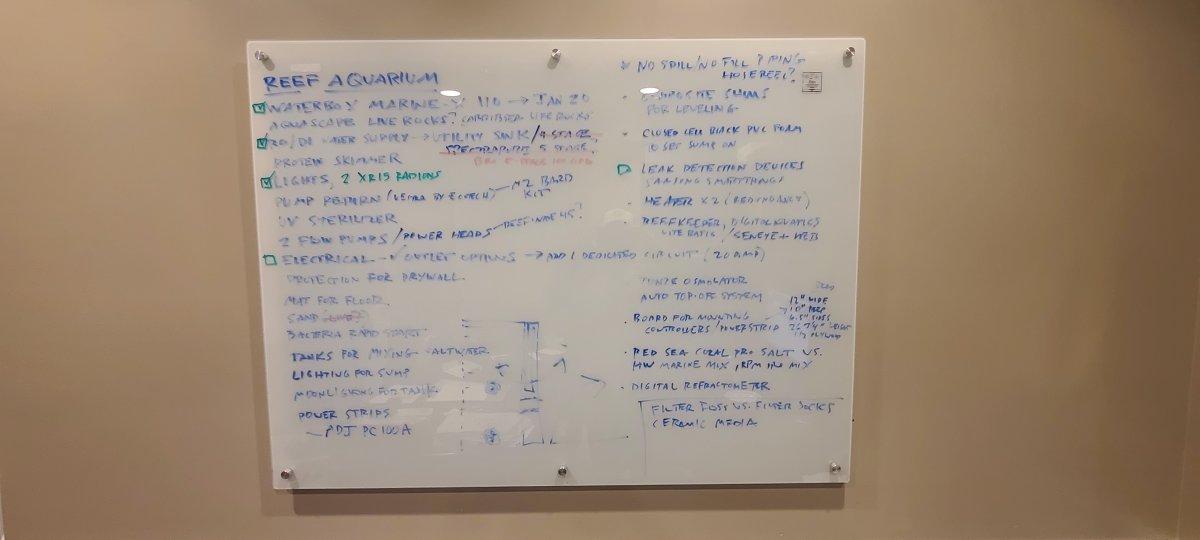 REEF AQUARIUM
WATERBOY MARINE 110 → JAN 20
AQUASCAPE LIVE ROCKS? CARIBSEA LIFE ROCKS
RO/DI WATER SUPPLY → UTILITY SINK / 4 STAGE
SPECTRAPURE 5 STAGE
PROTEIN SKIMMER
LIGHTS, 2 XR15 RADIONS
PUMP RETURN (VECTRA BY ECOTECH) M2 BOARD
KIT
UV STERILIZER
2 FLOW PUMPS / POWER HEADS REEFWAVE 45?
ELECTRICAL - OUTLET OPTIONS → ADD 1 DEDICATED CIRCUIT (20 AMP)
PROTECTION FOR DRYWALL
MAT FOR FLOOR
SAND
BACTERIA RAPID START
TANKS FOR MIXING SALTWATER
LIGHTING FOR SUMP
MOONLIGHTING FOR TANK
POWER STRIPS
PC100A
NO SPILL/NO FILL PIPING
HOSEREEL?
COMPOSITE SHIMS
FOR LEVELING
CLOSED CELL BLACK PVC FOAM
TO SET SUMP ON
LEAK DETECTION DEVICES
SAMSUNG SMARTTHINGS
HEATER X2 (REDUNDANCY)
REEFKEEPER, DIGITAL AQUATICS
LITE / SENEYE + WEB
OSMOLATOR
AUTO TOP-OFF SYSTEM
12" WIDE
10" DEEP
BOARD FOR MOUNTING
6.5" SIDES
CONTROLLERS/POWERSTRIP
PLYWOOD
RED SEA CORAL PRO SALT VS.
HW MARINE MIX, RPM MIX
DIGITAL REFRACTOMETER
FILTER FLOSS VS. FILTER SOCKS
CERAMIC MEDIA